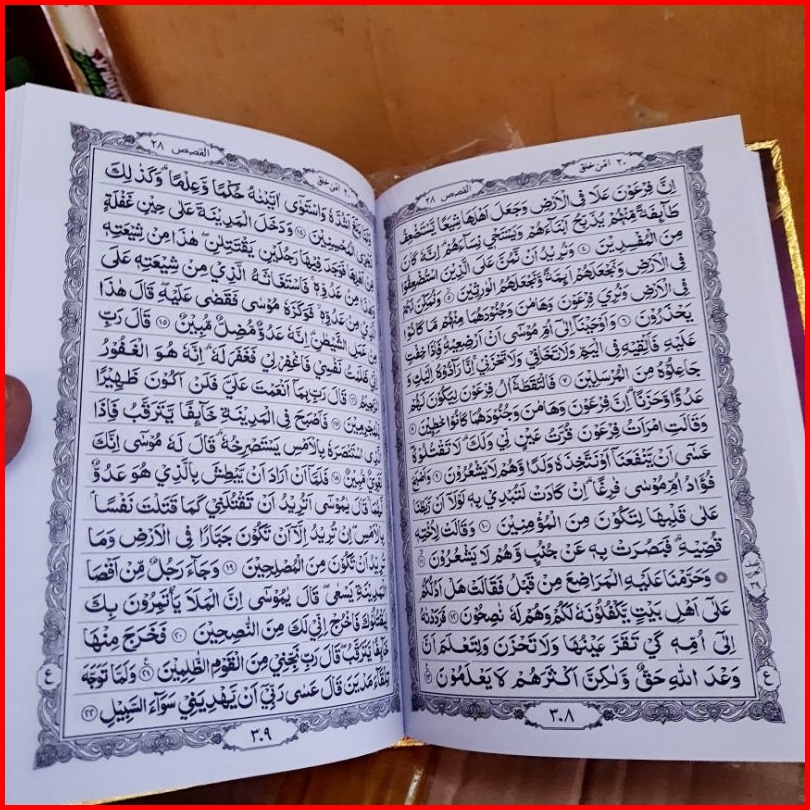 ٢٠ امن خلق القصص ٢٨
اِنَّ فِرْعَوْنَ عَلَا فِى الْاَرْضِ وَجَعَلَ اَهْلَهَا شِيَعًا يَّسْتَضْعِفُ
طَآئِفَةً مِّنْهُمْ يُذَبِّحُ اَبْنَآءَهُمْ وَيَسْتَحْيٖ نِسَآءَهُمْ ۗ اِنَّهٗ كَانَ
مِنَ الْمُفْسِدِيْنَ ٤ وَنُرِيْدُ اَنْ نَّمُنَّ عَلَى الَّذِيْنَ اسْتُضْعِفُوْا
فِى الْاَرْضِ وَنَجْعَلَهُمْ اَئِمَّةً وَّنَجْعَلَهُمُ الْوٰرِثِيْنَ ٥ وَنُمَكِّنَ لَهُمْ
فِى الْاَرْضِ وَنُرِيَ فِرْعَوْنَ وَهَامٰنَ وَجُنُوْدَهُمَا مِنْهُمْ مَّا كَانُوْا
يَحْذَرُوْنَ ٦ وَاَوْحَيْنَآ اِلٰٓى اُمِّ مُوْسٰٓى اَنْ اَرْضِعِيْهِ فَاِذَا خِفْتِ
عَلَيْهِ فَاَلْقِيْهِ فِى الْيَمِّ وَلَا تَخَافِيْ وَلَا تَحْزَنِيْ ۚ اِنَّا رَآدُّوْهُ اِلَيْكِ وَ
جَاعِلُوْهُ مِنَ الْمُرْسَلِيْنَ ٧ فَالْتَقَطَهٗٓ اٰلُ فِرْعَوْنَ لِيَكُوْنَ لَهُمْ
عَدُوًّا وَّحَزَنًا ۗ اِنَّ فِرْعَوْنَ وَهَامٰنَ وَجُنُوْدَهُمَا كَانُوْا خٰطِئِيْنَ ٨
وَقَالَتِ امْرَاَتُ فِرْعَوْنَ قُرَّتُ عَيْنٍ لِّيْ وَلَكَ ۗ لَا تَقْتُلُوْهُ ۖ
عَسٰٓى اَنْ يَّنْفَعَنَآ اَوْ نَتَّخِذَهٗ وَلَدًا وَّهُمْ لَا يَشْعُرُوْنَ ٩ وَاَصْبَحَ
فُؤَادُ اُمِّ مُوْسٰى فٰرِغًا ۗ اِنْ كَادَتْ لَتُبْدِيْ بِهٖ لَوْلَآ اَنْ رَّبَطْنَا
عَلٰى قَلْبِهَا لِتَكُوْنَ مِنَ الْمُؤْمِنِيْنَ ١٠ وَقَالَتْ لِاُخْتِهٖ
قُصِّيْهِ ۖ فَبَصُرَتْ بِهٖ عَنْ جُنُبٍ وَّهُمْ لَا يَشْعُرُوْنَ ١١
۞ وَحَرَّمْنَا عَلَيْهِ الْمَرَاضِعَ مِنْ قَبْلُ فَقَالَتْ هَلْ اَدُلُّكُمْ
عَلٰٓى اَهْلِ بَيْتٍ يَّكْفُلُوْنَهٗ لَكُمْ وَهُمْ لَهٗ نٰصِحُوْنَ ١٢ فَرَدَدْنٰهُ
اِلٰٓى اُمِّهٖ كَيْ تَقَرَّ عَيْنُهَا وَلَا تَحْزَنَ وَلِتَعْلَمَ اَنَّ
وَعْدَ اللّٰهِ حَقٌّ وَّلٰكِنَّ اَكْثَرَهُمْ لَا يَعْلَمُوْنَ ١٣
ع
٣٠٨
٢٠ امن خلق القصص ٢٨
وَلَمَّا بَلَغَ اَشُدَّهٗ وَاسْتَوٰٓى اٰتَيْنٰهُ حُكْمًا وَّعِلْمًا ۗ وَكَذٰلِكَ
نَجْزِى الْمُحْسِنِيْنَ ١٤ وَدَخَلَ الْمَدِيْنَةَ عَلٰى حِيْنِ غَفْلَةٍ
مِّنْ اَهْلِهَا فَوَجَدَ فِيْهَا رَجُلَيْنِ يَقْتَتِلٰنِ ۖ هٰذَا مِنْ شِيْعَتِهٖ
وَهٰذَا مِنْ عَدُوِّهٖ ۚ فَاسْتَغَاثَهُ الَّذِيْ مِنْ شِيْعَتِهٖ عَلَى
الَّذِيْ مِنْ عَدُوِّهٖ ۙ فَوَكَزَهٗ مُوْسٰى فَقَضٰى عَلَيْهِ ۖ قَالَ هٰذَا
مِنْ عَمَلِ الشَّيْطٰنِ ۗ اِنَّهٗ عَدُوٌّ مُّضِلٌّ مُّبِيْنٌ ١٥ قَالَ رَبِّ
اِنِّيْ ظَلَمْتُ نَفْسِيْ فَاغْفِرْ لِيْ فَغَفَرَ لَهٗ ۗ اِنَّهٗ هُوَ الْغَفُوْرُ
الرَّحِيْمُ ١٦ قَالَ رَبِّ بِمَآ اَنْعَمْتَ عَلَيَّ فَلَنْ اَكُوْنَ ظَهِيْرًا
لِّلْمُجْرِمِيْنَ ١٧ فَاَصْبَحَ فِى الْمَدِيْنَةِ خَآئِفًا يَّتَرَقَّبُ فَاِذَا
الَّذِى اسْتَنْصَرَهٗ بِالْاَمْسِ يَسْتَصْرِخُهٗ ۗ قَالَ لَهٗ مُوْسٰٓى اِنَّكَ
لَغَوِيٌّ مُّبِيْنٌ ١٨ فَلَمَّآ اَنْ اَرَادَ اَنْ يَّبْطِشَ بِالَّذِيْ هُوَ عَدُوٌّ
لَّهُمَا ۙ قَالَ يٰمُوْسٰٓى اَتُرِيْدُ اَنْ تَقْتُلَنِيْ كَمَا قَتَلْتَ نَفْسًا ۢ
بِالْاَمْسِ ۖ اِنْ تُرِيْدُ اِلَّآ اَنْ تَكُوْنَ جَبَّارًا فِى الْاَرْضِ وَمَا
تُرِيْدُ اَنْ تَكُوْنَ مِنَ الْمُصْلِحِيْنَ ١٩ وَجَآءَ رَجُلٌ مِّنْ اَقْصَا
الْمَدِيْنَةِ يَسْعٰى ۖ قَالَ يٰمُوْسٰٓى اِنَّ الْمَلَاَ يَأْتَمِرُوْنَ بِكَ
لِيَقْتُلُوْكَ فَاخْرُجْ اِنِّيْ لَكَ مِنَ النّٰصِحِيْنَ ٢٠ فَخَرَجَ مِنْهَا
خَآئِفًا يَّتَرَقَّبُ ۖ قَالَ رَبِّ نَجِّنِيْ مِنَ الْقَوْمِ الظّٰلِمِيْنَ ٢١ وَلَمَّا تَوَجَّهَ
تِلْقَآءَ مَدْيَنَ قَالَ عَسٰى رَبِّيْٓ اَنْ يَّهْدِيَنِيْ سَوَآءَ السَّبِيْلِ ٢٢
ع
٣٠٩